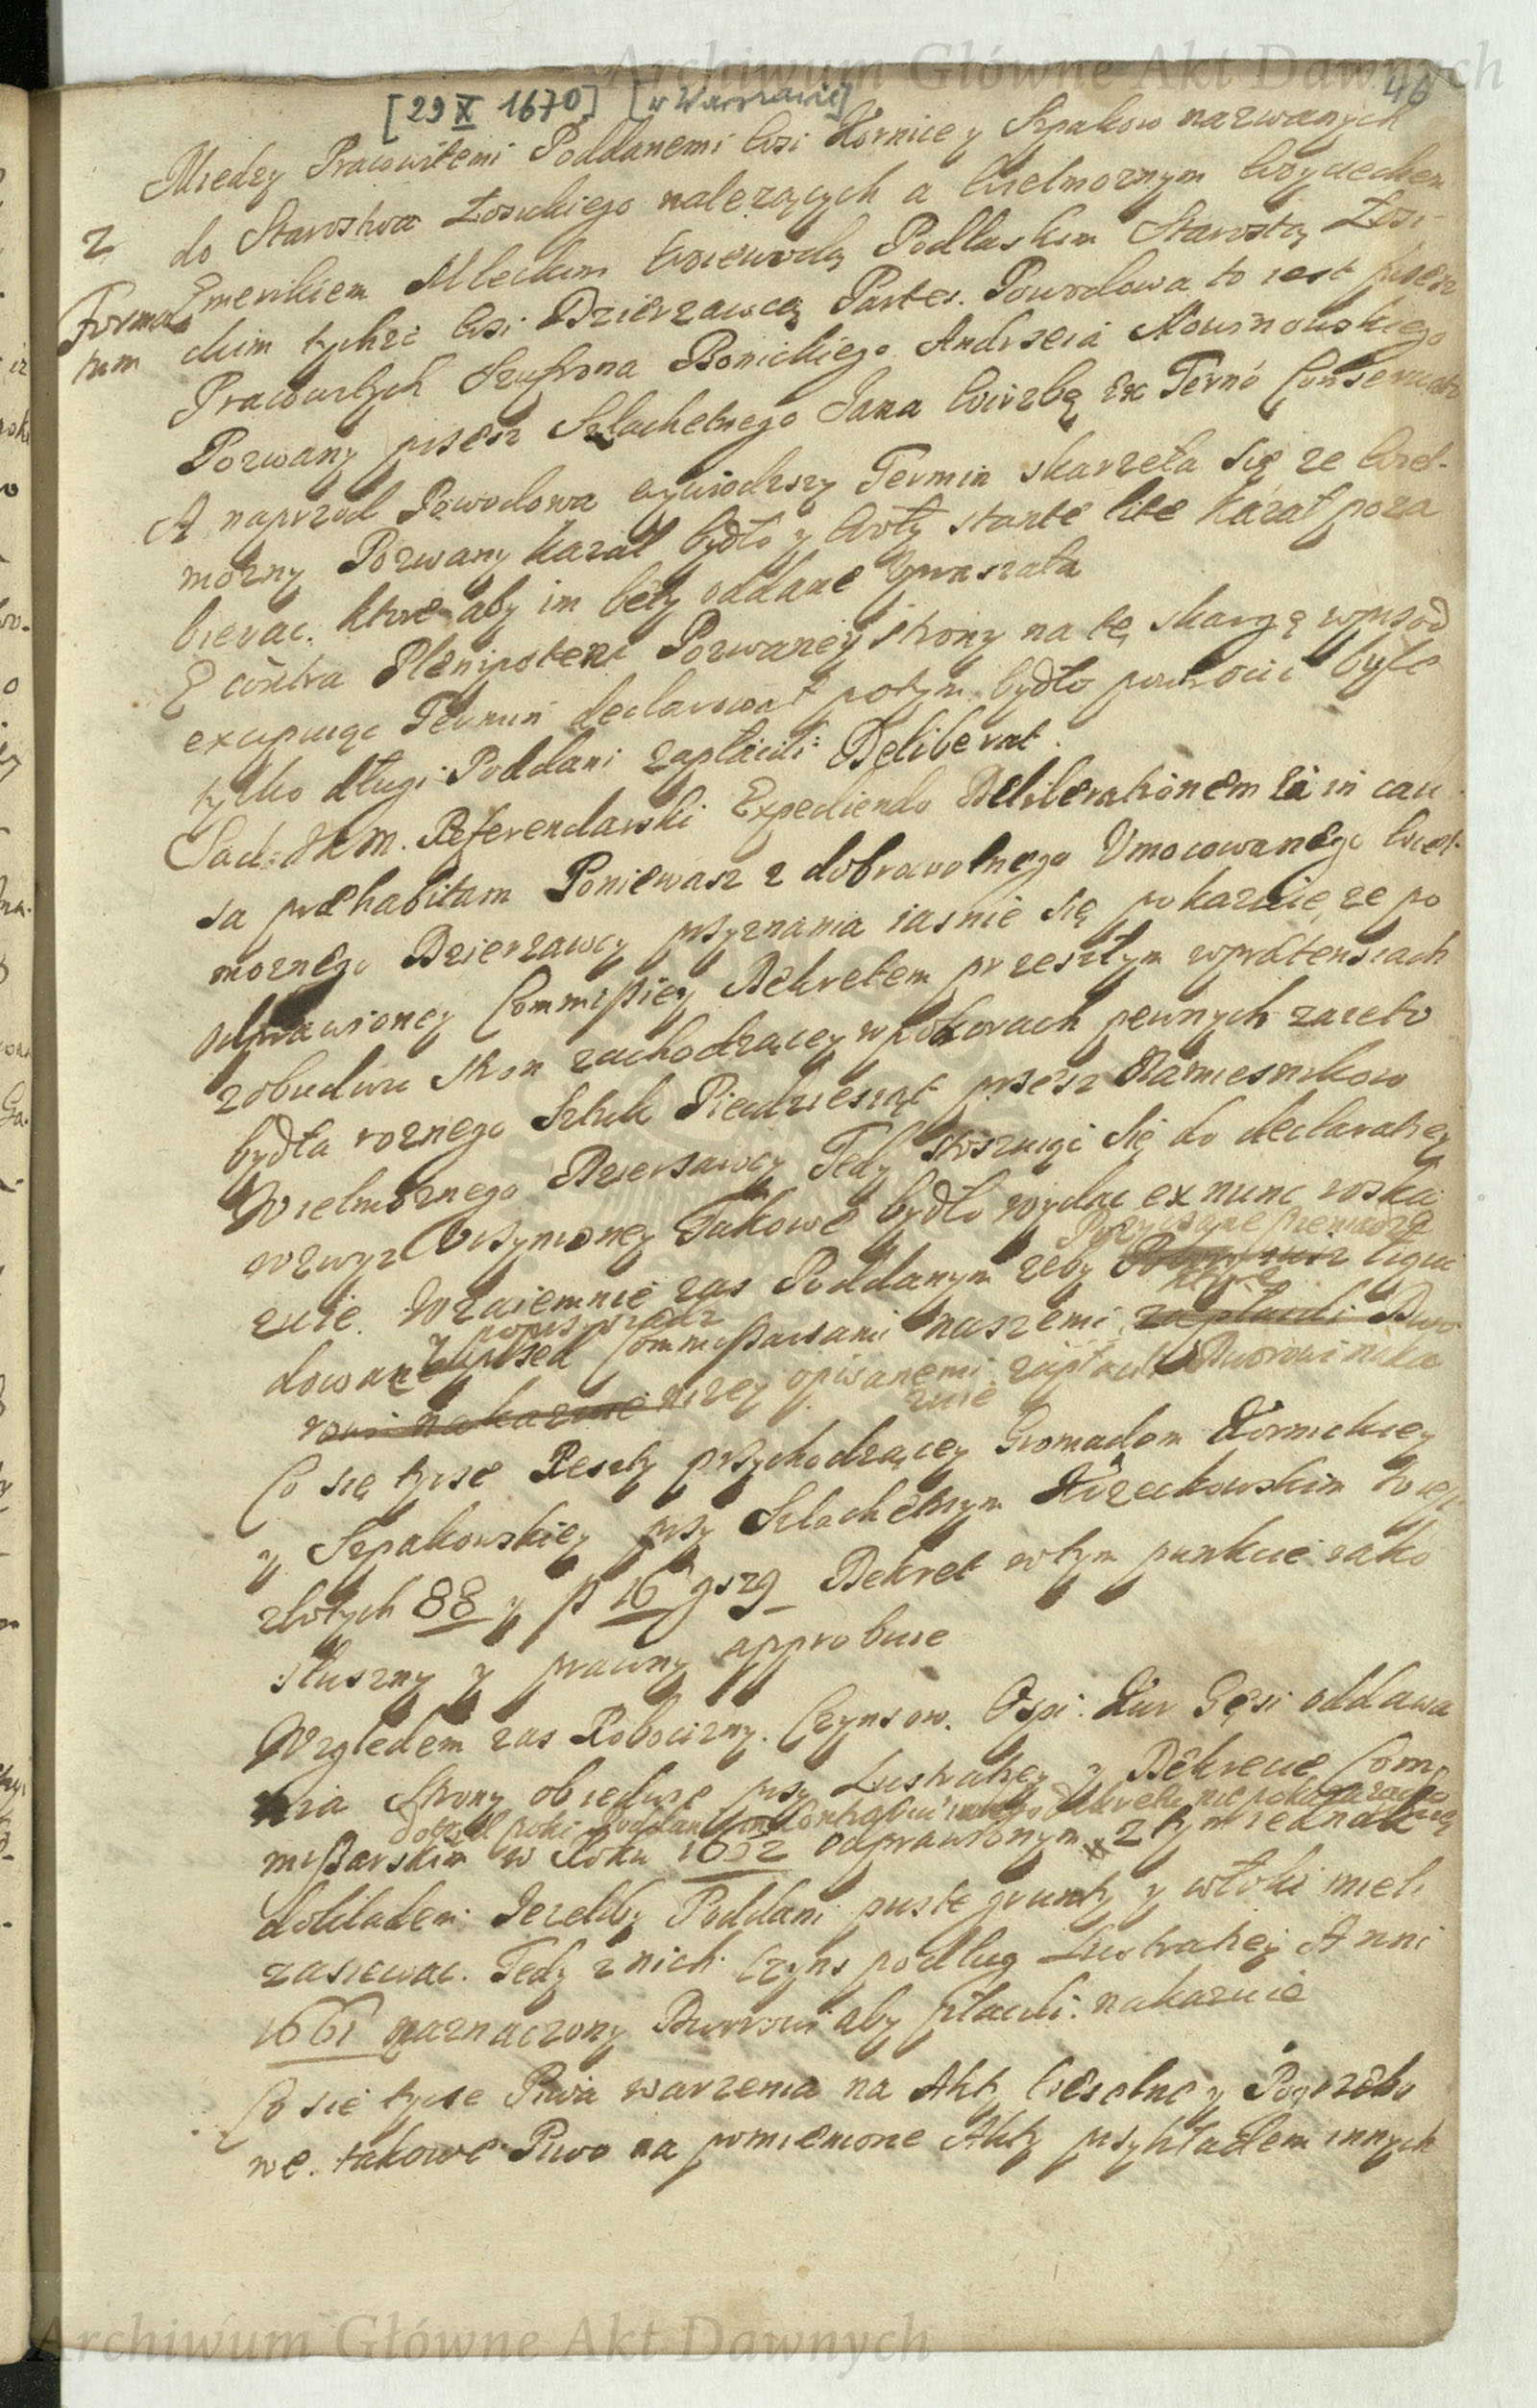 Archiwum Główne Akt Dawnych
46
[29 X 1670] [w Warszawie]
Między Pracowitemi Poddanemi Wsi Kornice y Szpakow nazwanych
2 do Starostwa Łosickiego należących a Wielmoznym Woyciechem
Formatum Emerikiem Mleckim Woiewodą Podlaskim Starostą Łosi-
ckim tychże Wsi Dzierzawcą Partes. Powodowa to iest przez
Pracowitych Bonickiego Andrzeia
Pozwany przesz Szlachetnego Jana Wirzbę Ex Termo Conservato
A naprzod Powodowa wywiodszy Termin skarzeła się ze Wiel-
mozny Pozwany kazał bydło y Woły stante lite kazał poza
bierac. ktore aby im beły oddane upraszała
E contra Plenipotent Pozwaney strony na tę skargę wprzod
excypuiąc Termin declarował potym bydło powrocic byle
tylko długi Poddani zapłacili: Deliberat.
Sąd JKM. Referendarski Expediendo Deliberationem Ea in cau
sa praehabitam Poniewasz z dobrowolnego Umocowanego Wiel-
moznego Dzierzawcy przyznania iasnie się pokazuie, ze po
odprawioney Commissiey Dekretem przeszłym w praetensiach
z obudwu stron zachodzącey w poborach pewnych zaięto
bydła roznego Sztuk Piędziesiąt przesz Namiesnikow
Wielmoznego Dzierzawcy Tedy stosuiąc się do declaratiey
wzwyz uczynioney Takowe bydło wydac ex nunc roska
zuie. Wzaiemnie zas Poddanym zeby Pozyczane pieniądze liqui
dowane przed Commissarzami naszemi Dwo
rowi nakazuie nizey opisanemi zapłacili Dworowi naka
zuie
Co się tycze Reszty przychodzącey Gromadom Kornickiey
y Szpakowskiey przy Szlachetnym
złotych 88 y p 16 gr 29 Dekret w tym punkcie iako
słuszny y prawny approbuie
Względem zas Robocizny. Czynszow. Ospi. Kur Gęsi oddawa
nia Strony obiedwie przy Lustratiey y Dekrecie Com
missarskim w Roku 1662 odprawionym z tym iednak
dokładem Jezeliby Poddani puste grunty y włoki mieli
zasiewac. Tedy z nich czyns podług Lustratiey Anni
1661 naznaczony Dworowi aby płacili: nakazuie
Co sie tycze Piwa warzenia na Akty Weselne y Pogrzebo
we. takowe Piwo na pomienione Akty przykładem innych
Archiwum Główne Akt Dawnych